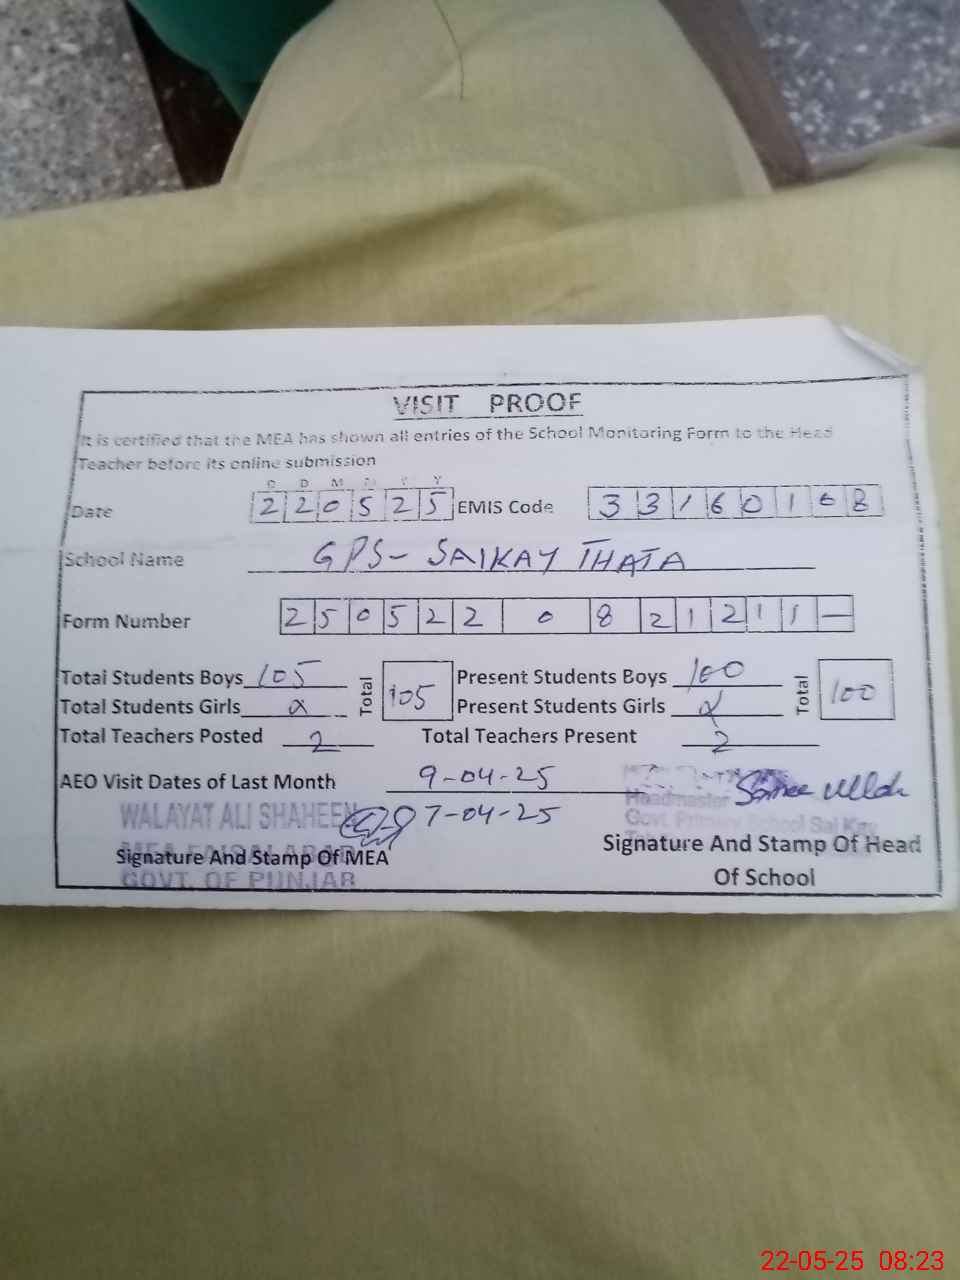 VISIT PROOF
It is certified that the MEA has shown all entries of the School Monitoring Form to the Head
Teacher before its online submission
D D M M Y Y
Date 2 2 0 5 2 5 EMIS Code 3 3 1 6 0 1 6 8
School Name GPS- SAIKAY THATA
Form Number 2 5 0 5 2 2 0 8 2 1 2 1 1 -
Total Students Boys 105 Total 105 Present Students Boys 100 Total 100
Total Students Girls x Present Students Girls x
Total Teachers Posted 2 Total Teachers Present 2
AEO Visit Dates of Last Month 9-04-25
WALAYAT ALI SHAHEEN 7-04-25 Headmaster
Govt. Primary School Sai Kay
Signature And Stamp Of MEA Signature And Stamp Of Head
MEA FAISALABAD
GOVT. OF PUNJAB Of School
22-05-25 08:23